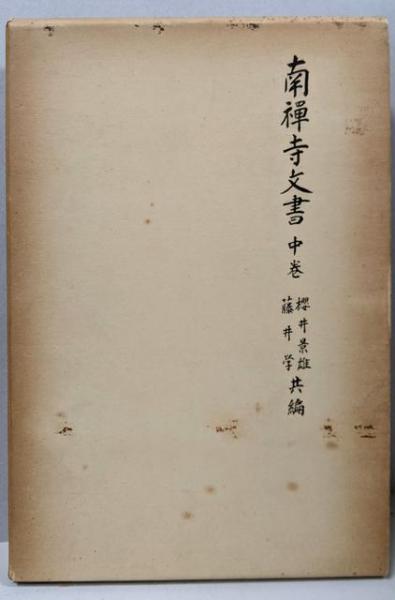 南禪寺文書 中巻
櫻井景雄
藤井学 共編